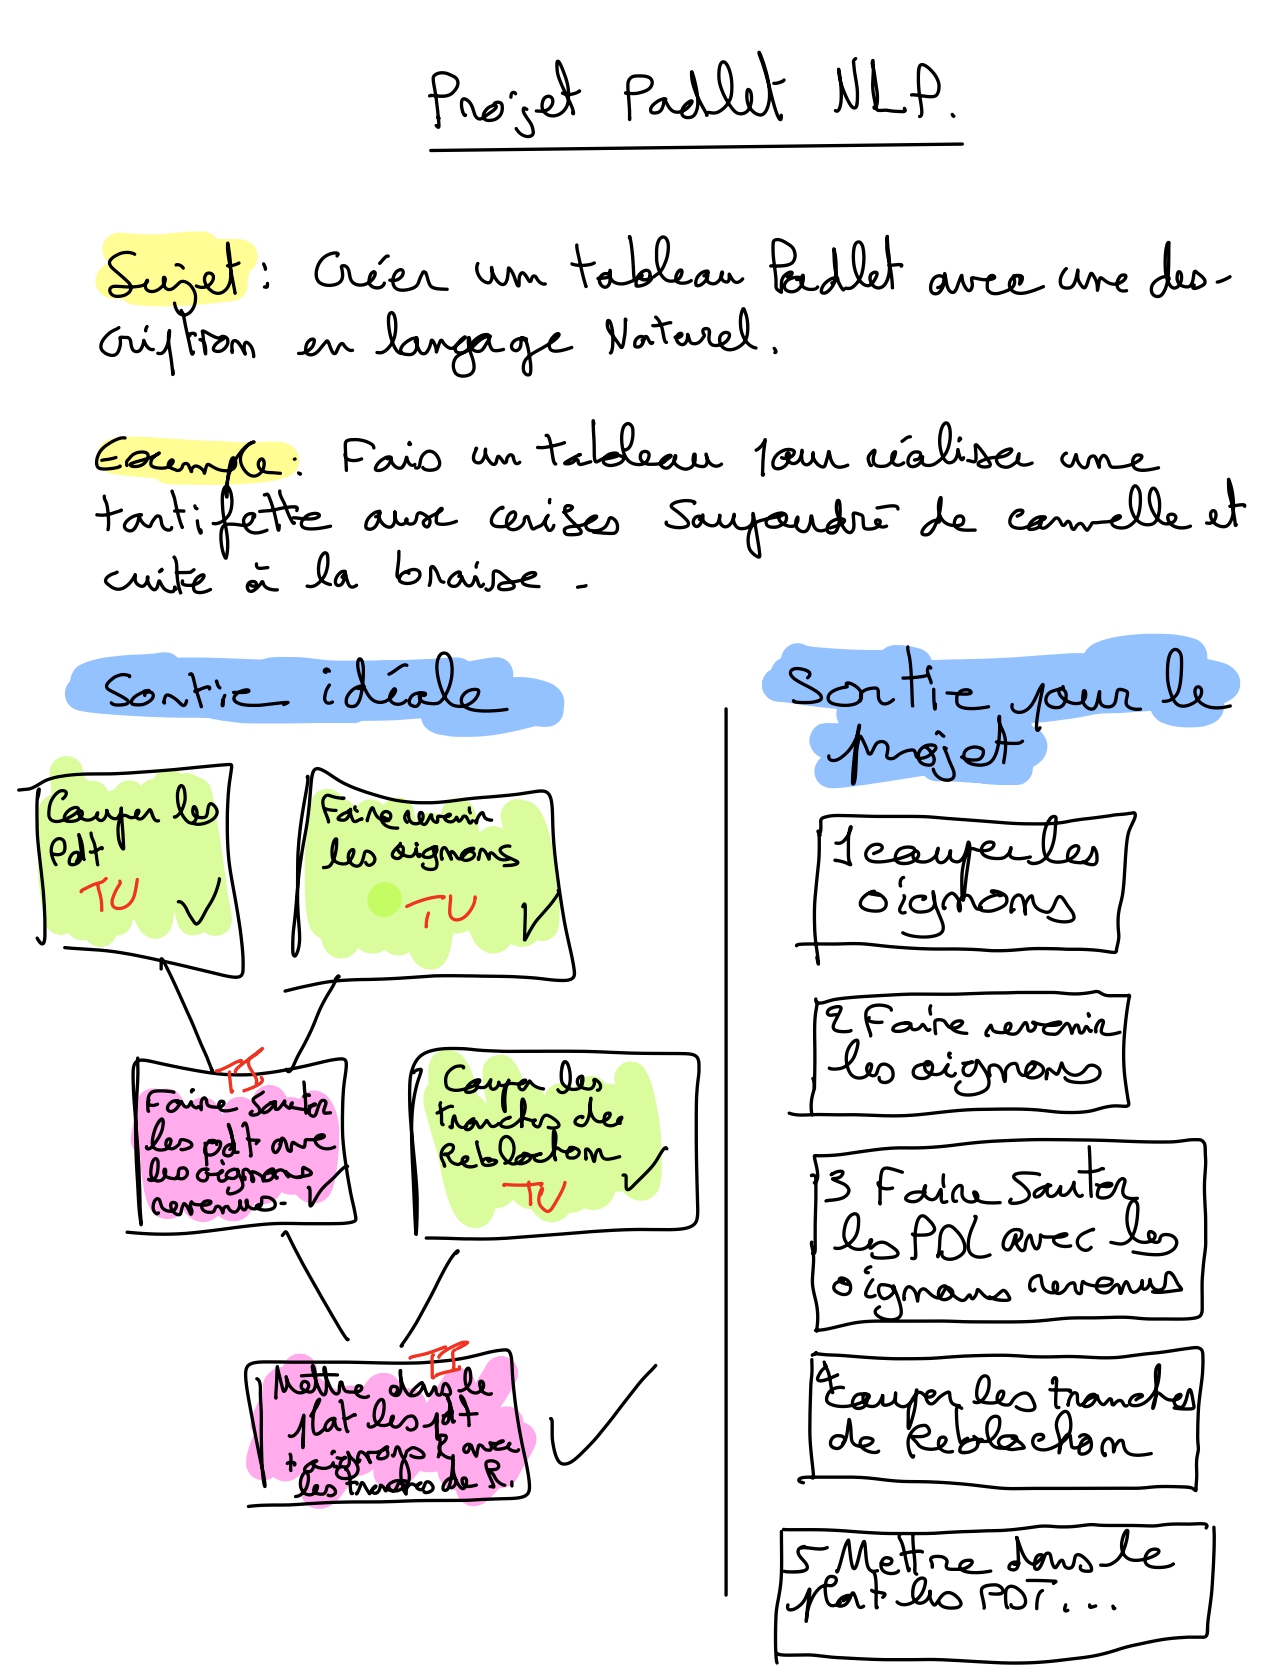 Projet Padlet NLP.
Sujet : Créer un tableau Padlet avec une des-
cription en langage Naturel.
Exemple : Fais un tableau pour réaliser une
tartifette aux cerises Saupoudré de cannelle et
cuite à la braise -
Sortie idéale
Couper les
Pdt
TU
Faire revenir
les oignons
TU
TI
Faire Sauter
les pdt avec
les oignons
revenus-
Couper les
tranches de
Reblochon
TU
TI
Mettre dans le
plat les pdt
+ oignons R avec
les tranches de R.
Sortie pour le
projet
1 couper les
oignons
2 Faire revenir
les oignons
3 Faire Sauter
les PDL avec les
oignons revenus
4
Couper les tranches
de Reblochon
5 Mettre dans le
plat les PDT...